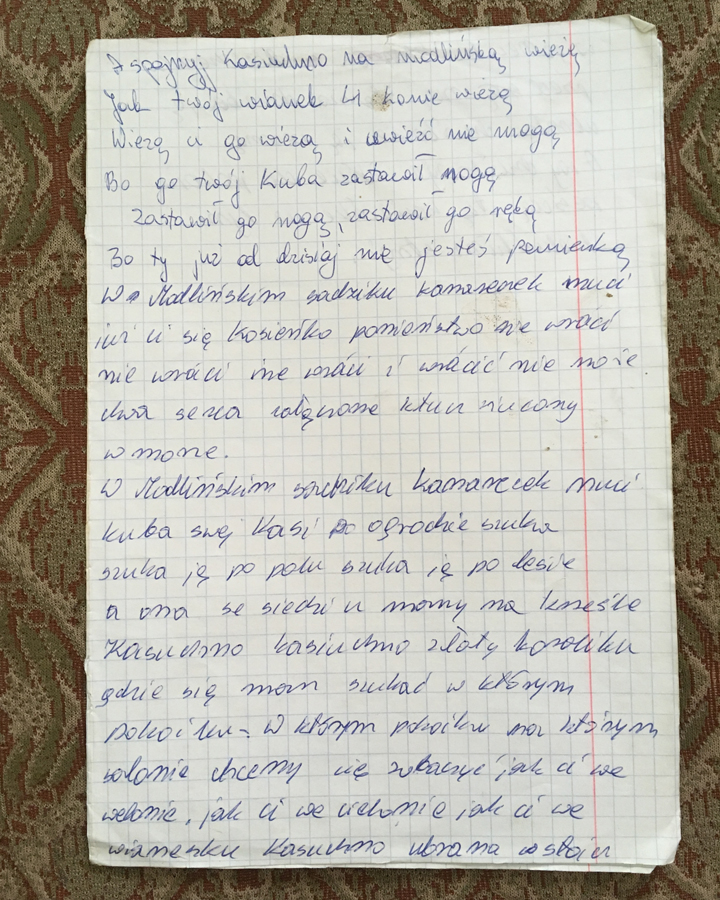 A spojrzyj Kasiuchno na modlińską wieżę
Jak twój wianek 4 konie wiezą
Wiezą ci go wiezą i uwieźć nie mogą
Bo go twój Kuba zastawił nogą
Zastawił go nogą, zastawił go ręką
Bo ty już od dzisiaj nie jesteś panienką
W Modlińskim sadziku kanareczek nuci
już ci się Kosieńko panieństwo nie wróci
nie wróci nie wróci i wrócić nie może
dwa serca złączone klucz rzucony
w morze.
W Modlińskim sadziku kanareczek nuci
kuba swej Kasi po ogrodzie szuka
szuka ją po polu szuka ją po lesie
a ona se siedzi u mamy na krześle
Kasiuchno kasiuchno złoty koraliku
gdzie się mam szukać w którym
pokoiku = W którym pokoiku na którym
salonie chcemy cię zobaczyć jak ci we
welonie, jak ci we jak ci we
wianeszku Kasiuchno ubrana